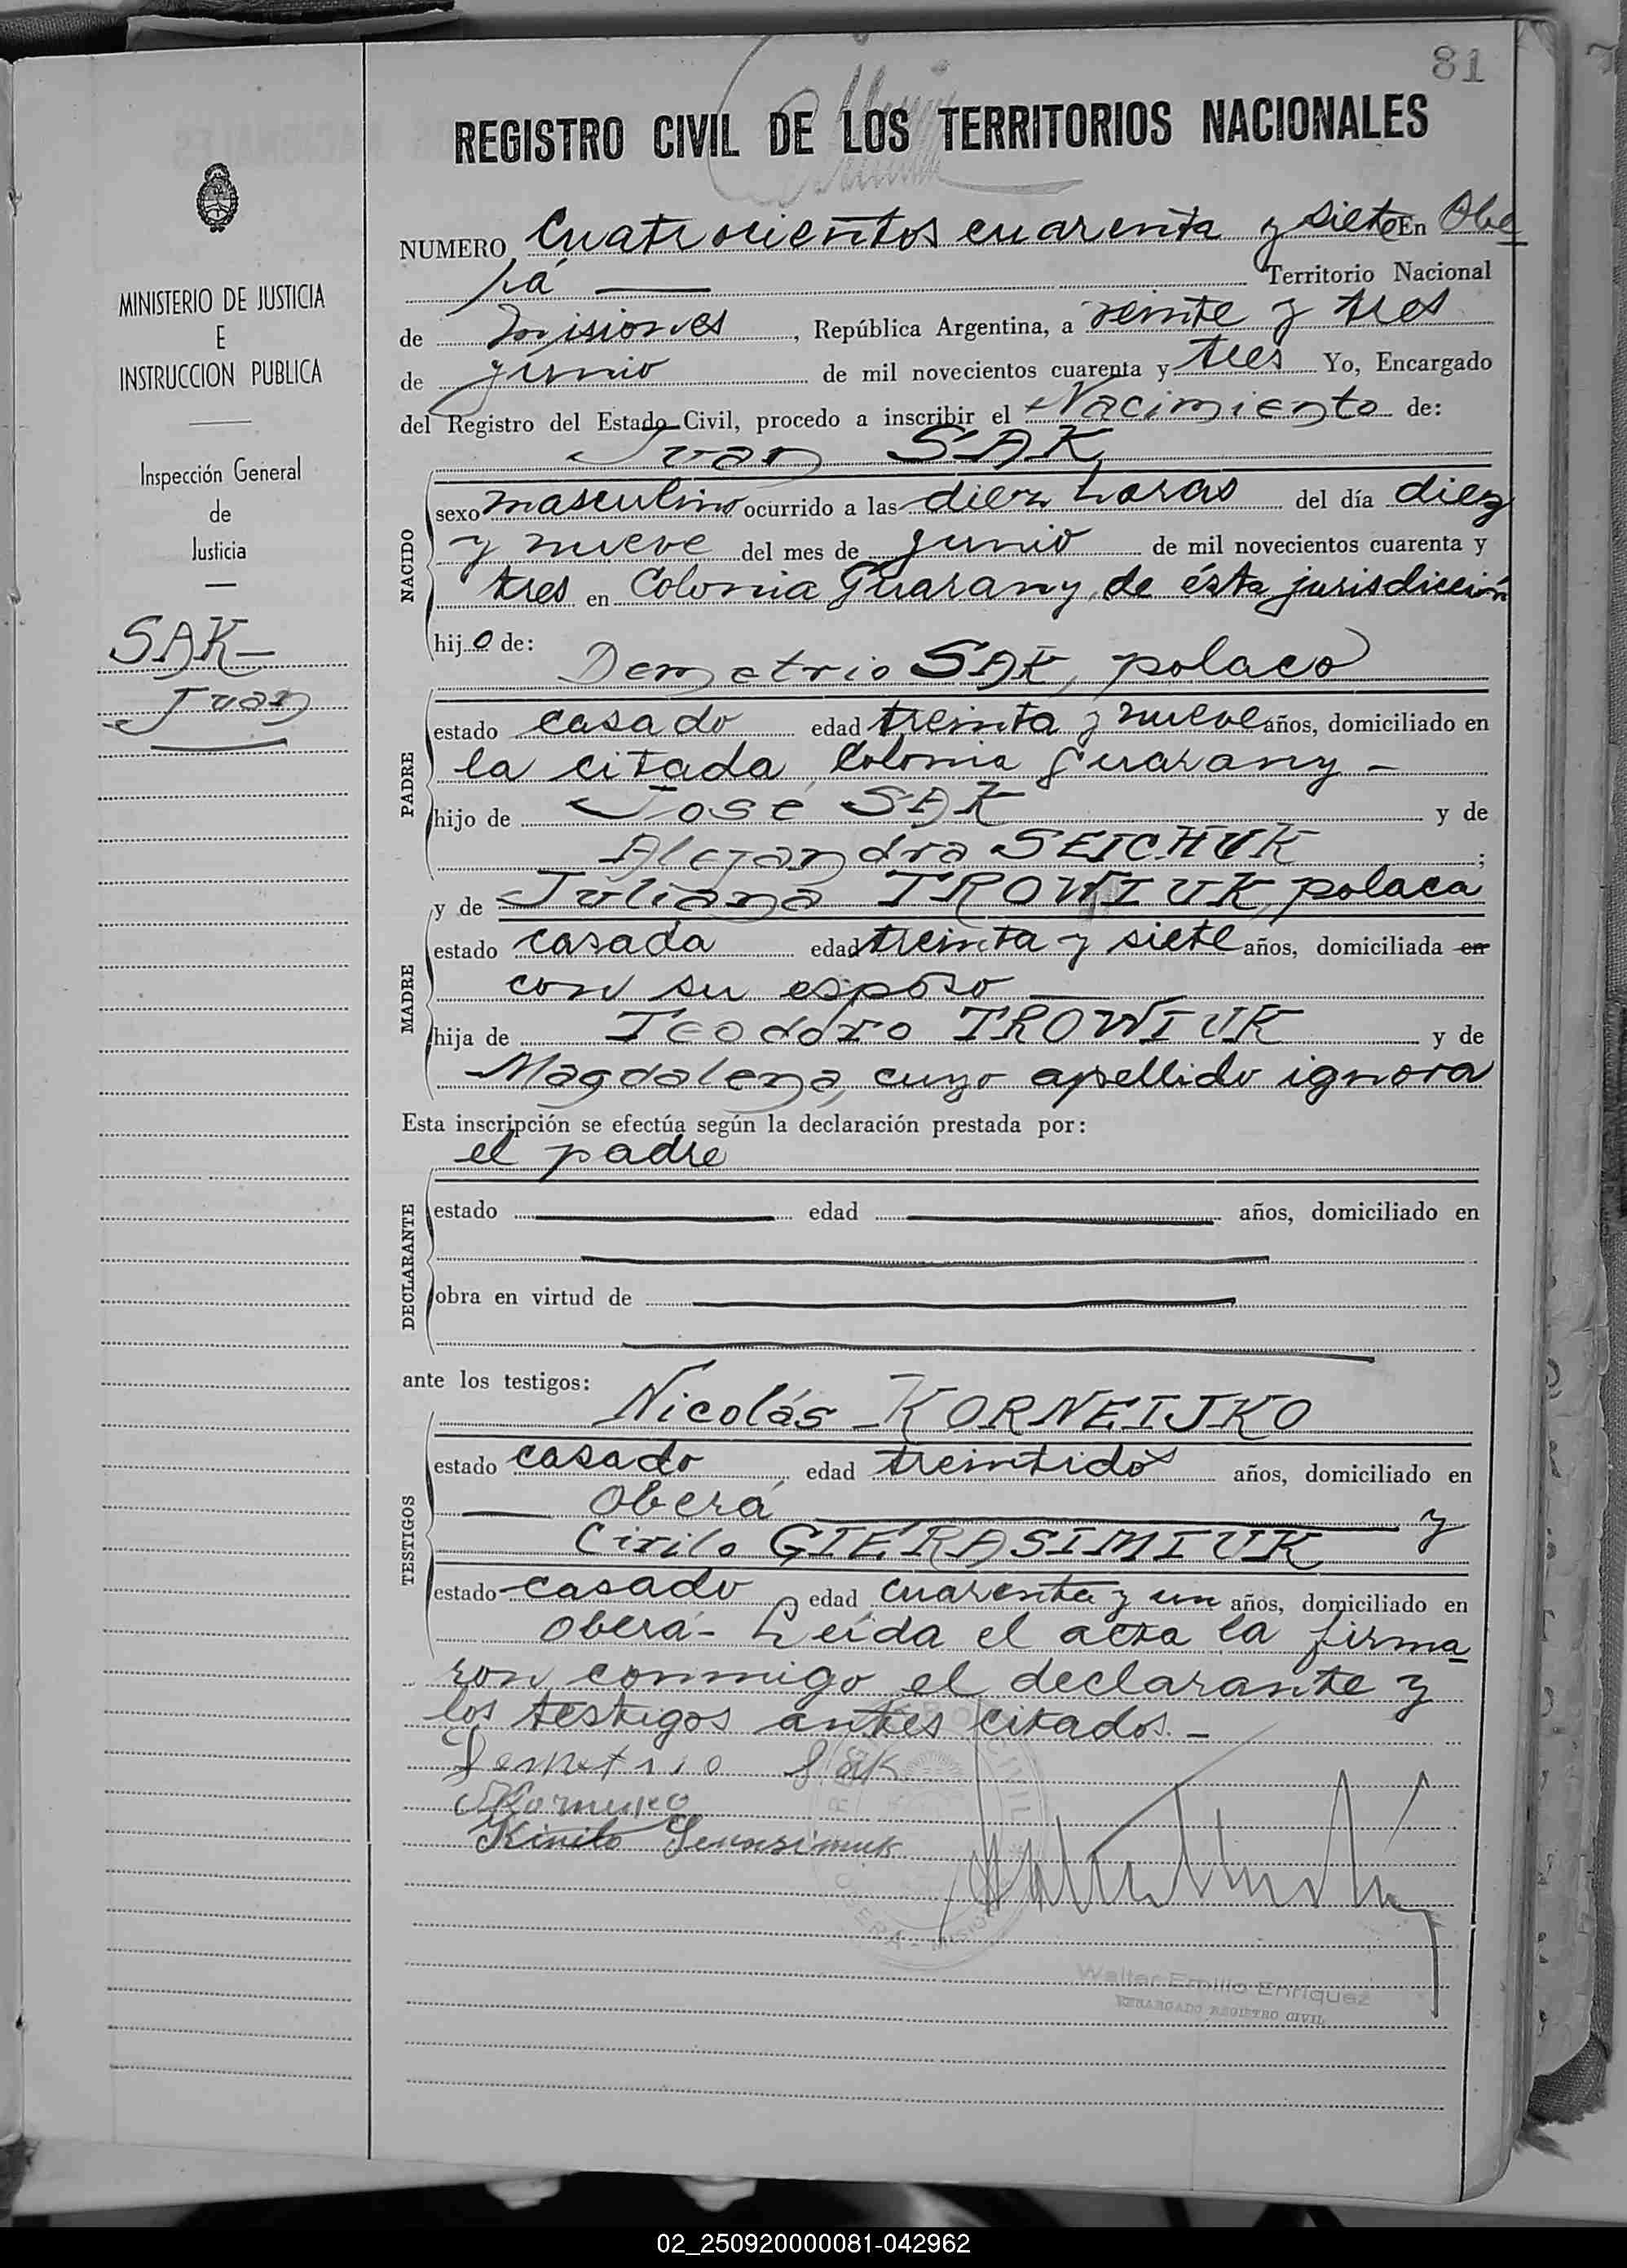 81
REGISTRO CIVIL DE LOS TERRITORIOS NACIONALES
MINISTERIO DE JUSTICIA
E
INSTRUCCION PUBLICA
Inspección General
de
Justicia
SAK
Juan
NUMERO Cuatrocientos cuarenta y siete En Obe
rá Territorio Nacional
de Misiones, República Argentina, a veinte y tres
de junio de mil novecientos cuarenta y tres Yo, Encargado
del Registro del Estado Civil, procedo a inscribir el Nacimiento de:
Juan SAK
NACIDO
sexo masculino ocurrido a las diez horas del día diez
y nueve del mes de junio de mil novecientos cuarenta y
tres en Colonia Guarany, de ésta jurisdicción
hijo de:
Demetrio SAK, polaco
PADRE
estado casado edad treinta y nueve años, domiciliado en
la citada Colonia Guarany -
hijo de José SAK y de
Alejandra SEICHUK;
MADRE
y de Juliana TROWIUK, polaca
estado casada edad treinta y siete años, domiciliada en
con su esposo
hija de Teodoro TROWIUK y de
Magdalena, cuyo apellido ignora
Esta inscripción se efectúa según la declaración prestada por:
el padre
DECLARANTE
estado edad años, domiciliado en
obra en virtud de
ante los testigos:
Nicolás KORNEIJKO
TESTIGOS
estado casado edad treintidós años, domiciliado en
Oberá y
Cirilo GIERASIMIUK
estado casado edad cuarenta y un años, domiciliado en
Oberá - Leída el acta la firma
ron conmigo el declarante y
los testigos antes citados. -
Demetrio Sak
REGISTRO CIVIL
OBERA - MISIONES
Walter Emilio Enriquez
ENCARGADO REGISTRO CIVIL
02_250920000081-042962